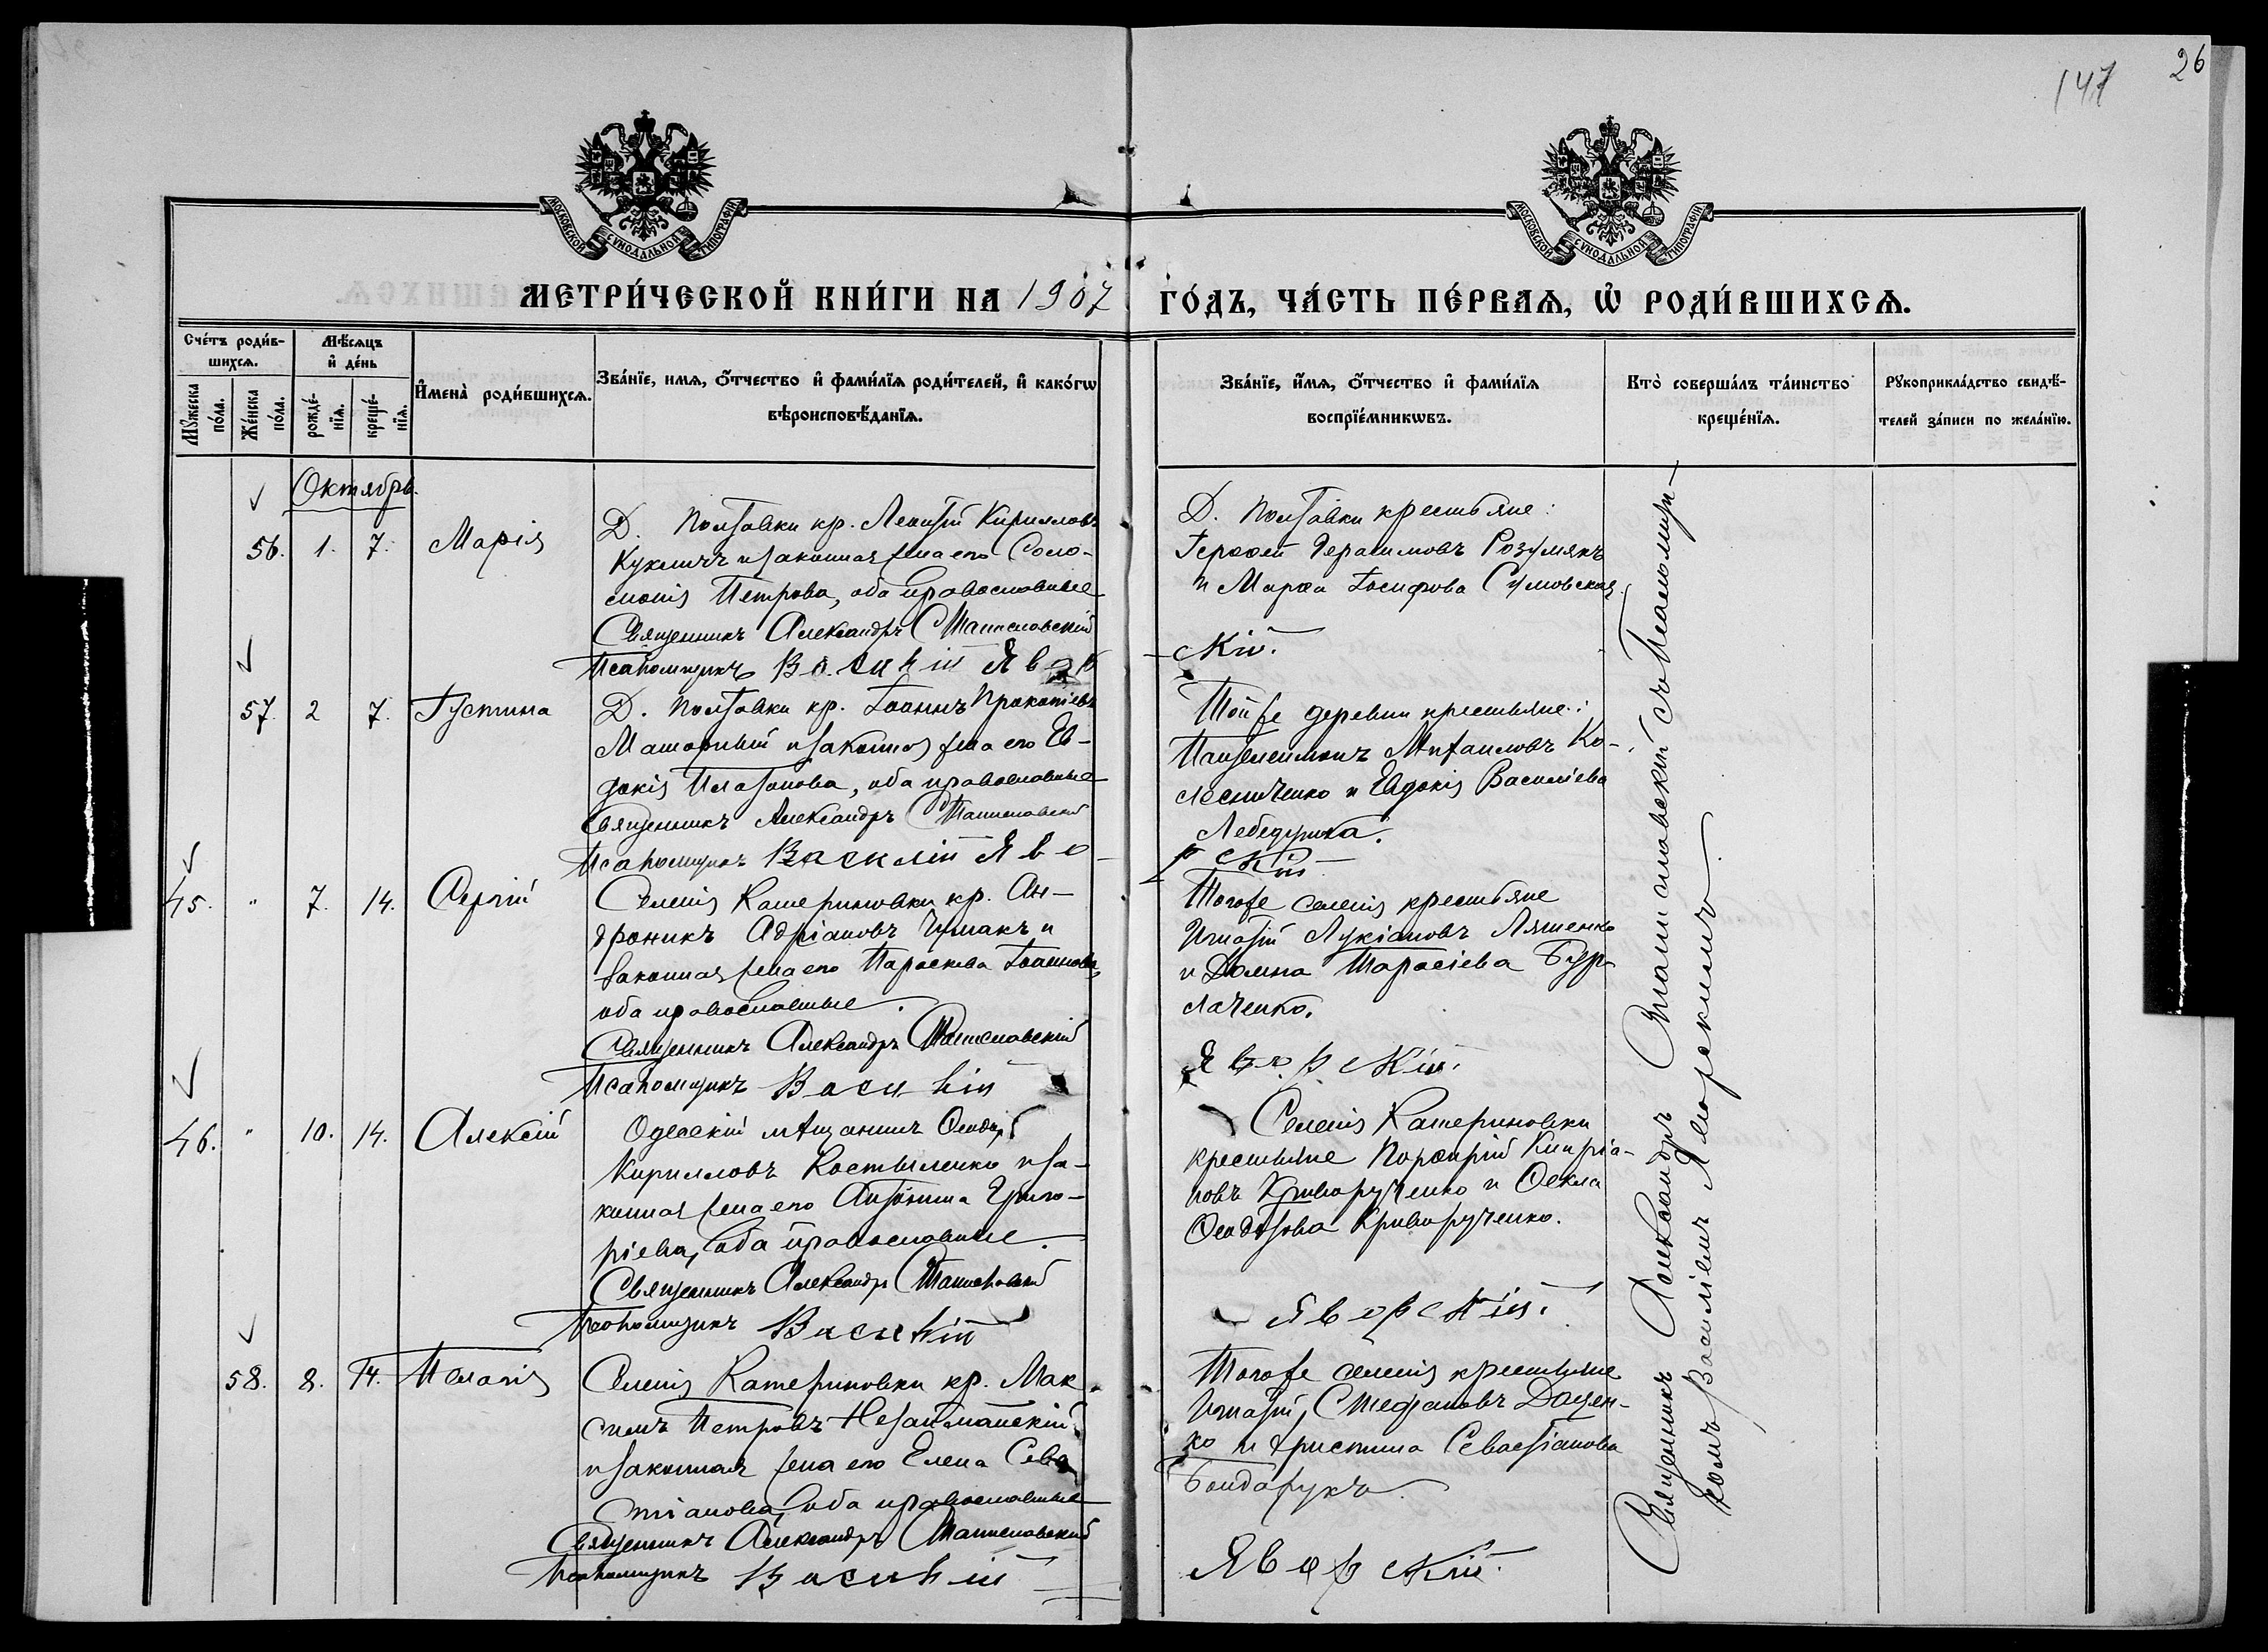 147
26
МОСКОВСКОЙ СѴНОДАЛЬНОЙ ТИПОГРАФІИ
МОСКОВСКОЙ СѴНОДАЛЬНОЙ ТИПОГРАФІИ
МЕТРИ́ЧЕСКОЙ КНИ́ГИ НА 1907 ГО́ДЪ, ЧА́СТЬ ПЕ́РВАѦ, Ѡ҆ РОДИ́ВШИХСѦ.
Сче́тъ роди́в-
шихсѧ.
Мꙋжеска
по́ла.
Же́нска
по́ла.
Мѣ́сѧцъ
и҆ де́нь
рожде́-
нїѧ.
креще́-
нїѧ.
И҆мена̀ роди́вшихсѧ.
Зва́нїе, имѧ, ѻ҆́тчество и҆ фами́лїѧ роди́телей, и҆ како́гѡ
вѣроисповѣ́данїѧ.
Зва́нїе, и҆́мѧ, ѻ҆́тчество и҆ фами́лїѧ
воспрїе́мникѡвъ.
Кто̀ соверша́лъ та́инство
креще́нїѧ.
Рꙋкоприкла́дство свидѣ́-
телей за́писи по жела́нїю.
Октябрь.
56. 1. 7. Марія
Д. Полтавки кр. Леонтій Кирилловъ
Куклишъ и законная жена его Соло-
монія Петрова, оба православные
Священникъ Александръ Станиславскій
Псаломщикъ Василій Явор
Д. Полтавки крестьяне:
Герасимовъ Розумякъ
и Марѳа Іосифова Сумовская
-скій.
57. 2 7. Іустина
Д. Полтавки кр. Іоаннъ Прокопіевъ
и законная жена его Ев-
докія Платонова, оба православные
Священникъ Александръ Станиславскій
Псаломщикъ Василій Яво-
Той же деревни крестьяне:
Пантелеимонъ Михаиловъ Ко-
лесниченко и Евдокія Василіева
рскій
45. " 7. 14. Сергій
Селенія Катериновки кр. Ан-
дроникъ Адріановъ Чумакъ и
законная жена его Параскева Іоаннова,
оба православные.
Священникъ Александръ Станиславскій
Псаломщикъ Василій
Того же селенія крестьяне
Игнатій Лукіановъ Ляшенко
и Домна Тарасіева Бур-
лаченко.
Яворскій.
46. " 10. 14. Алексій
Одесскій мѣщанинъ Ѳеодоръ
Кирилловъ Костыленко и за-
конная жена его Антонина Григо-
ріева, оба православные.
Священникъ Александръ Станиславскій
Псаломщикъ Василій
Селенія Катериновки
крестьяне Порфирій Кипріа-
новъ Криворученко и Ѳекла
Криворученко.
Яворскій.
58. 8. 14. Пелагія
Селенія Катериновки кр. Мак-
симъ Петровъ Незайманскій
и законная жена его Елена Сева
стіанова, оба православные
Священникъ Александръ Станиславскій
Псаломщикъ Василій
Того же селенія крестьяне
Игнатій Стефановъ Доцен-
ко и Христина Севастіанова
Бондарукъ.
Яворскій.
Священникъ Александръ Станиславскій съ Псаломщи-
комъ Василіемъ Яворскимъ.